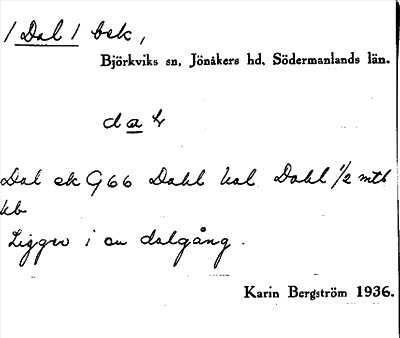 / Dal / bsk,
Björkviks sn, Jönåkers hd, Södermanlands län.
Dal ek G66 Dahl kal Dahl 1/2 mtl
kb
Ligger i en dalgång.
Karin Bergström 1936.